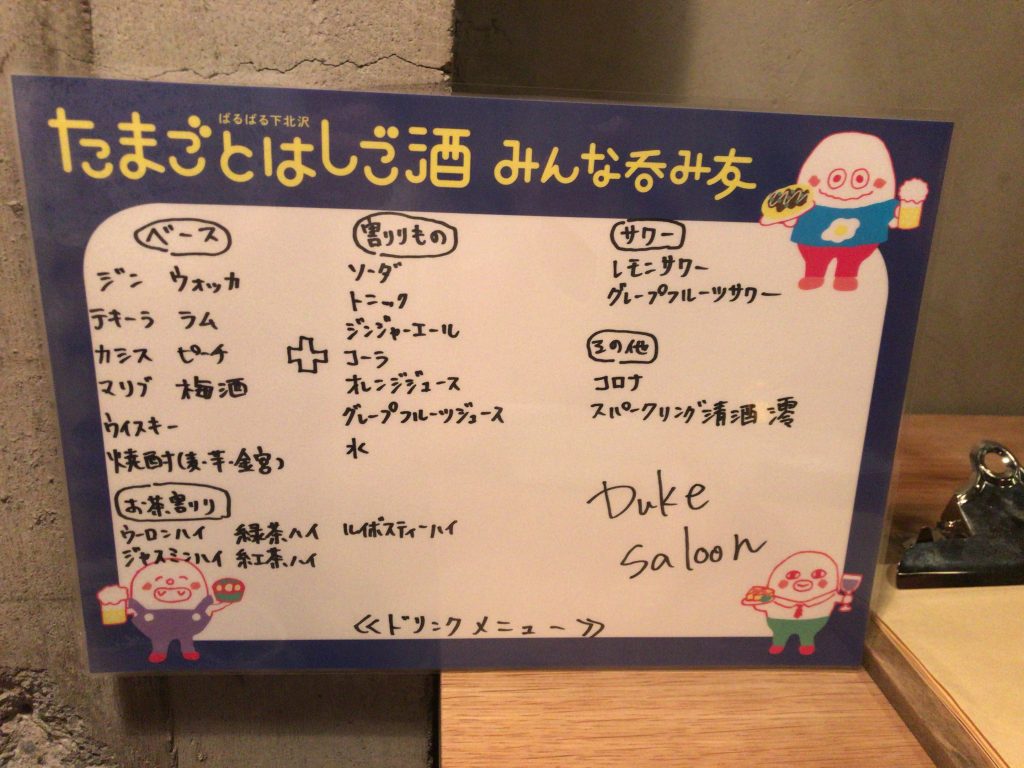 ばるばる下北沢
たまごとはしご酒 みんな呑み友
ベース
ジン ウォッカ
テキーラ ラム
カシス ピーチ
マリブ 梅酒
ウイスキー
焼酎(麦・芋・金宮)
お茶割り
ウーロンハイ 緑茶ハイ ルイボスティーハイ
ジャスミンハイ 紅茶ハイ
割りもの
ソーダ
トニック
ジンジャーエール
コーラ
オレンジジュース
グレープフルーツジュース
水
サワー
レモンサワー
グレープフルーツサワー
その他
コロナ
スパークリング清酒 澪
Duke
saloon
≪ドリンクメニュー≫